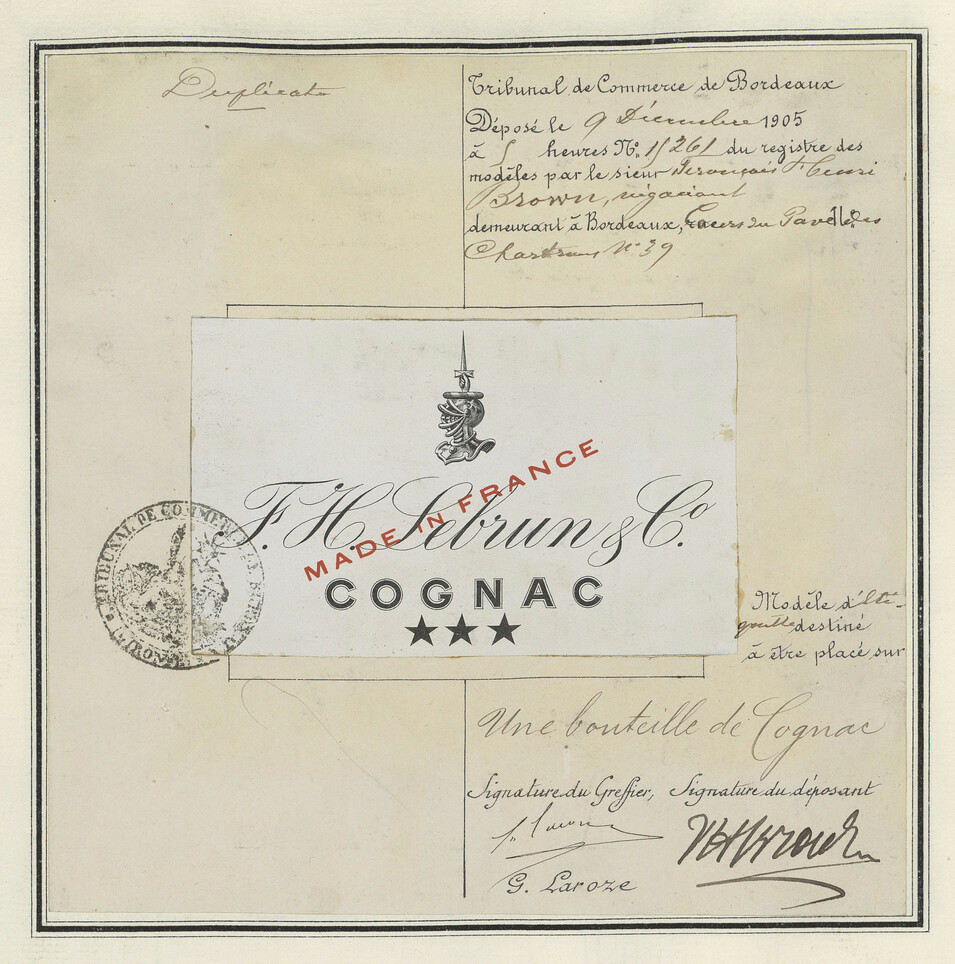 Duplicata
Tribunal de Commerce de Bordeaux
Déposé le 9 Décembre 1905
à 5 heures No. 15261 du registre des
modèles par le sieur François Henri
Brown, négociant
demeurant à Bordeaux, cours du Pavé des
Chartrons No 39
MADE IN FRANCE
F. H. Lebrun & Co.
COGNAC
TRIBUNAL DE COMMERCE DE BORDEAUX
(GIRONDE)
Modèle d'éti-
quette destiné
à être placé sur
Une bouteille de Cognac
Signature du Greffier, Signature du déposant
G. Laroze